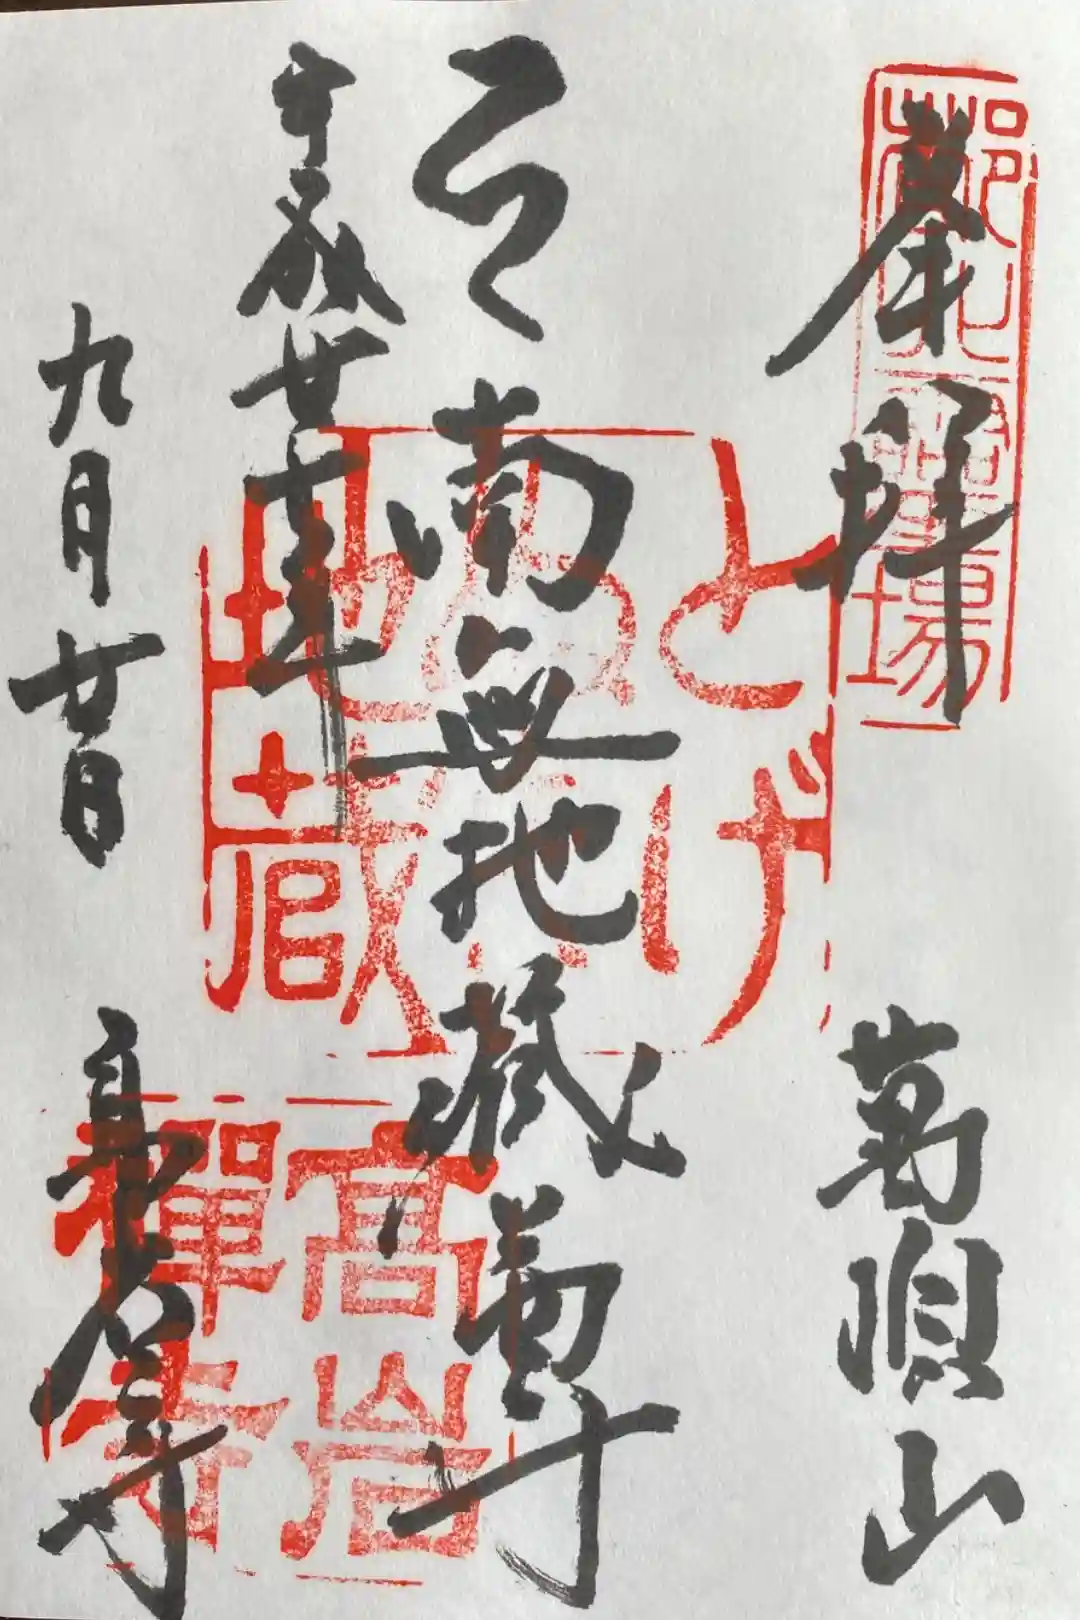 奉拝 萬頂山
南無地藏尊
平成廿 年
九月廿日 高岩寺
とげぬき
地蔵
高岩
禪寺